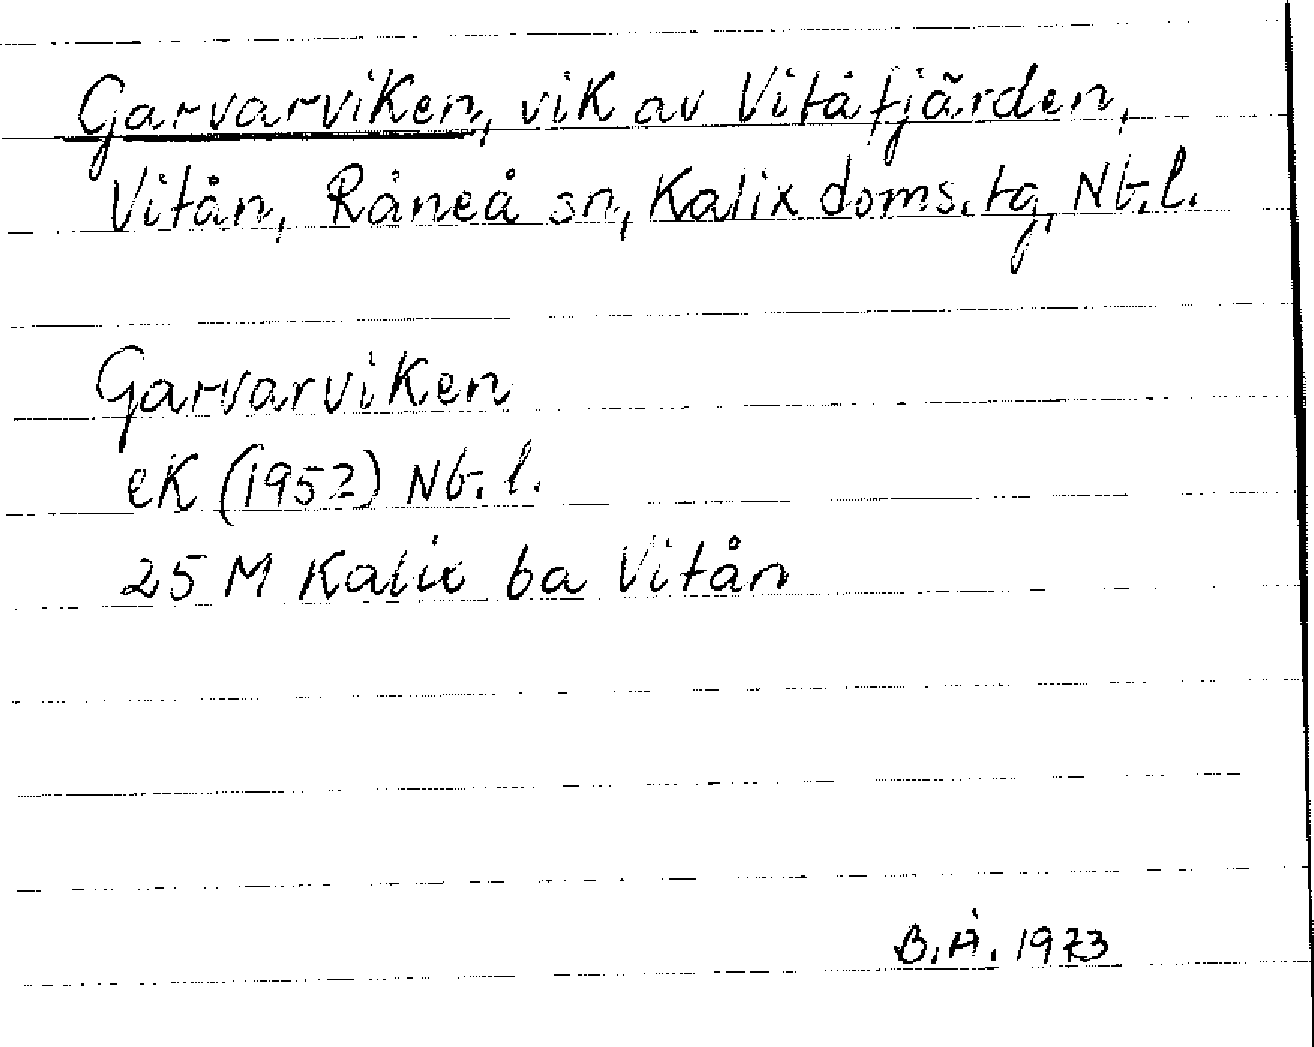 Garvarviken, vik av Vitåfjärden,
Vitån, Råneå sn, Kalix doms.tg, Nb.l.
Garvarviken
eK (1952) Nb.l.
25 M Kalix ba Vitån
B.Å. 1973